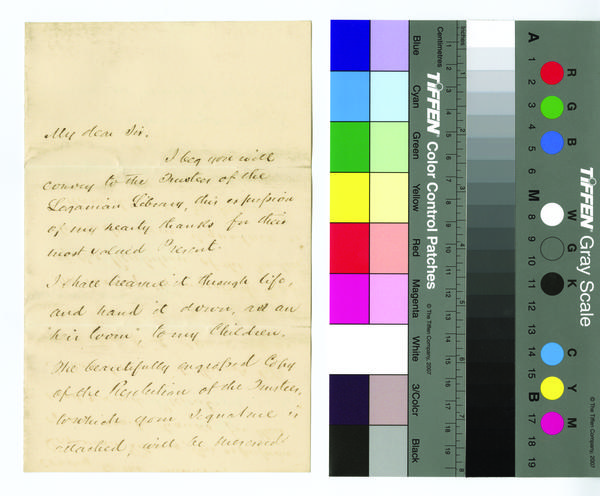 My dear Sir.
I beg you will
convey to the Trustees of the
Loganian Library, this expression
of my hearty thanks for their
most valued Present.
I shall treasure it through life,
and hand it down, as an
"heir loom", to my Children.
The beautifully engrossed Copy
of the Resolution of the Trustees,
to which your signature is
attached, will be
Blue
Cyan
Green
Yellow
Red
Magenta
White
3/Color
Black
Centimetres
Inches
TIFFEN Color Control Patches
© The Tiffen Company, 2007
1
2
3
4
5
6
7
8
9
10
11
12
13
14
15
16
17
18
19
A
1
2
3
4
5
6
M
8
9
10
11
12
13
14
15
B
17
18
19
R
G
B
W
G
K
C
Y
M
TIFFEN Gray Scale
© The Tiffen Company, 2007